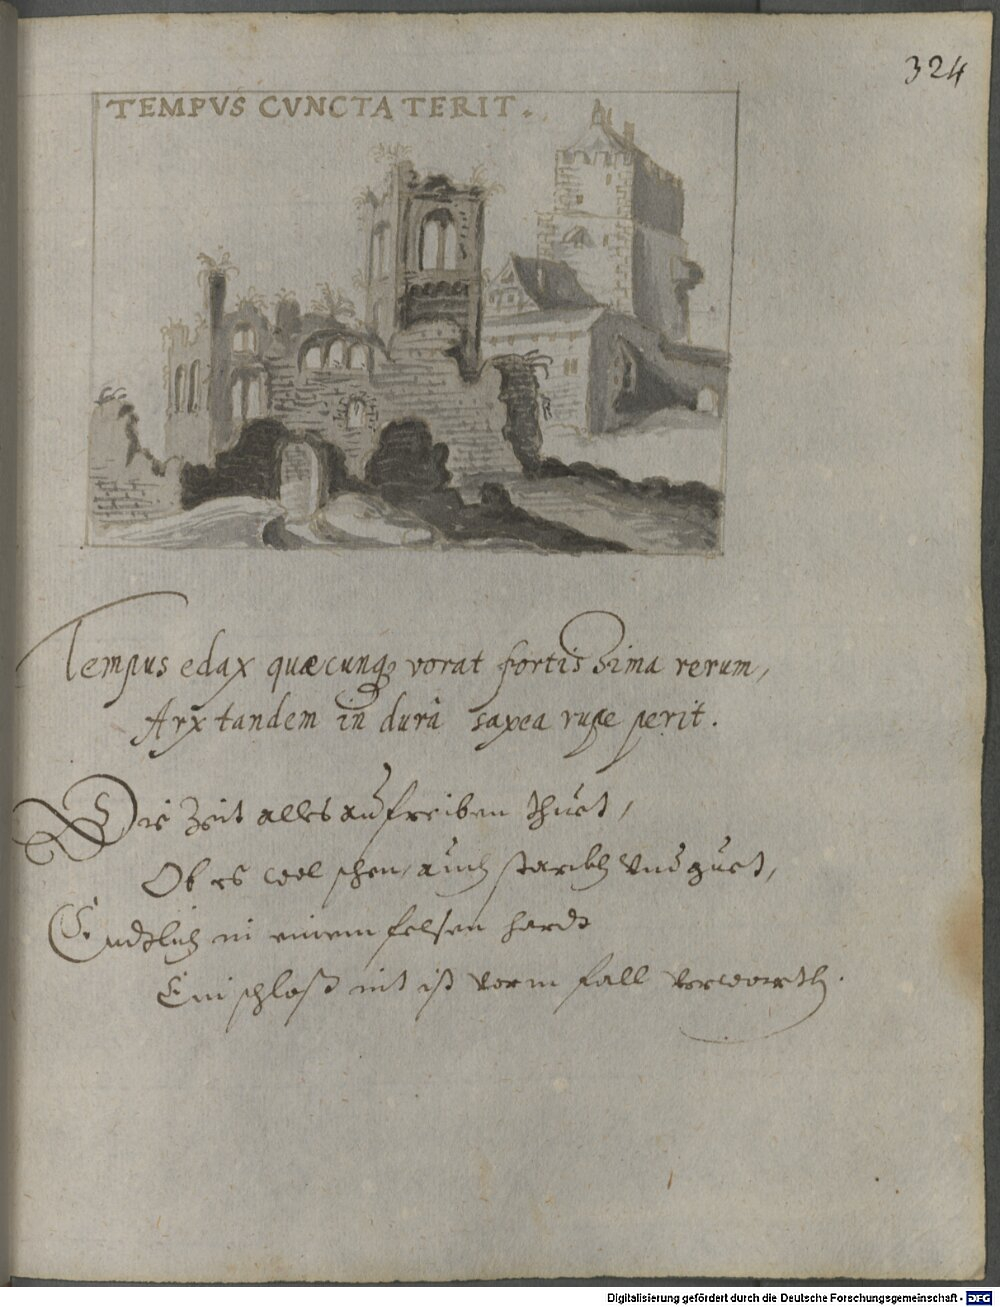 324
TEMPVS CVNCTA TERIT.
Tempus edax quæcunq, vorat fortissima rerum,
Arx tandem in durâ saxea rupe perit.
Die Zeit alles aufreiben thuet,
Ob es woel schen, auch starckh vnd guet,
Endtlich in einem felsen hardt
Ein schloß nit ist vorm fall
Digitalisierung gefördert durch die Deutsche Forschungsgemeinschaft - DFG